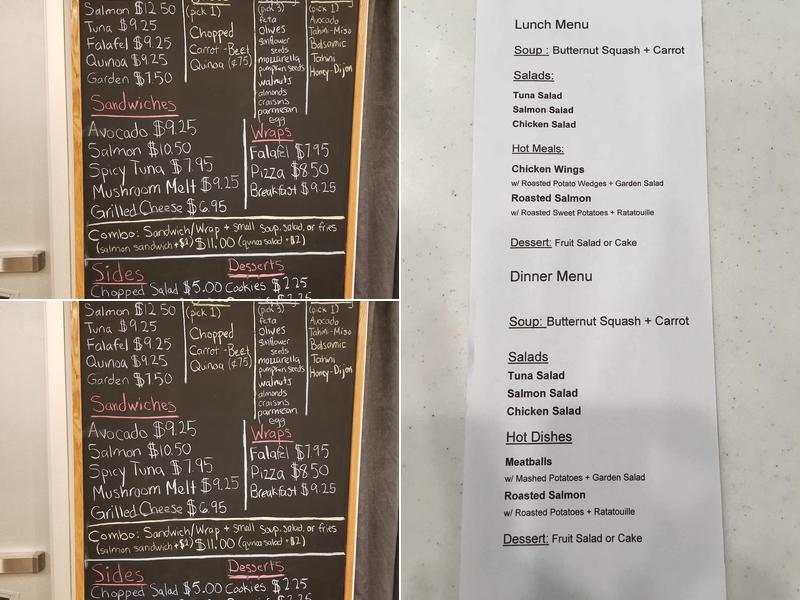 Salmon $12.50
Tuna $9.25
Falafel $9.25
Quinoa $9.25
Garden $7.50
(pick 1)
Chopped
Carrot-Beet
Quinoa (¢75)
(pick 3)
feta
Olives
sunflower
seeds
mozzarella
pumpkin seeds
walnuts
almonds
craisins
parmesan
egg
(pick 1)
Avocado
Tahini-Miso
Balsamic
Tahini
Honey-Dijon
Sandwiches
Avocado $9.25
Salmon $10.50
Spicy Tuna $7.95
Mushroom Melt $9.25
Grilled Cheese $6.95
Wraps
Falafel $7.95
Pizza $8.50
Breakfast $9.25
Combo: Sandwich/Wrap + small soup, salad, or fries
(salmon sandwich +$2) $11.00 (quinoa salad +$2)
Sides
Chopped Salad $5.00
Desserts
Cookies $2.25
Salmon $12.50
Tuna $9.25
Falafel $9.25
Quinoa $9.25
Garden $7.50
(pick 1)
Chopped
Carrot-Beet
Quinoa (¢75)
(pick 3)
feta
Olives
sunflower
seeds
mozzarella
pumpkin seeds
walnuts
almonds
craisins
parmesan
egg
(pick 1)
Avocado
Tahini-Miso
Balsamic
Tahini
Honey-Dijon
Sandwiches
Avocado $9.25
Salmon $10.50
Spicy Tuna $7.95
Mushroom Melt $9.25
Grilled Cheese $6.95
Wraps
Falafel $7.95
Pizza $8.50
Breakfast $9.25
Combo: Sandwich/Wrap + small soup, salad, or fries
(salmon sandwich +$2) $11.00 (quinoa salad +$2)
Sides
Chopped Salad $5.00
Desserts
Cookies $2.25
Lunch Menu
Soup : Butternut Squash + Carrot
Salads:
Tuna Salad
Salmon Salad
Chicken Salad
Hot Meals:
Chicken Wings
w/ Roasted Potato Wedges + Garden Salad
Roasted Salmon
w/ Roasted Sweet Potatoes + Ratatouille
Dessert: Fruit Salad or Cake
Dinner Menu
Soup: Butternut Squash + Carrot
Salads
Tuna Salad
Salmon Salad
Chicken Salad
Hot Dishes
Meatballs
w/ Mashed Potatoes + Garden Salad
Roasted Salmon
w/ Roasted Potatoes + Ratatouille
Dessert: Fruit Salad or Cake